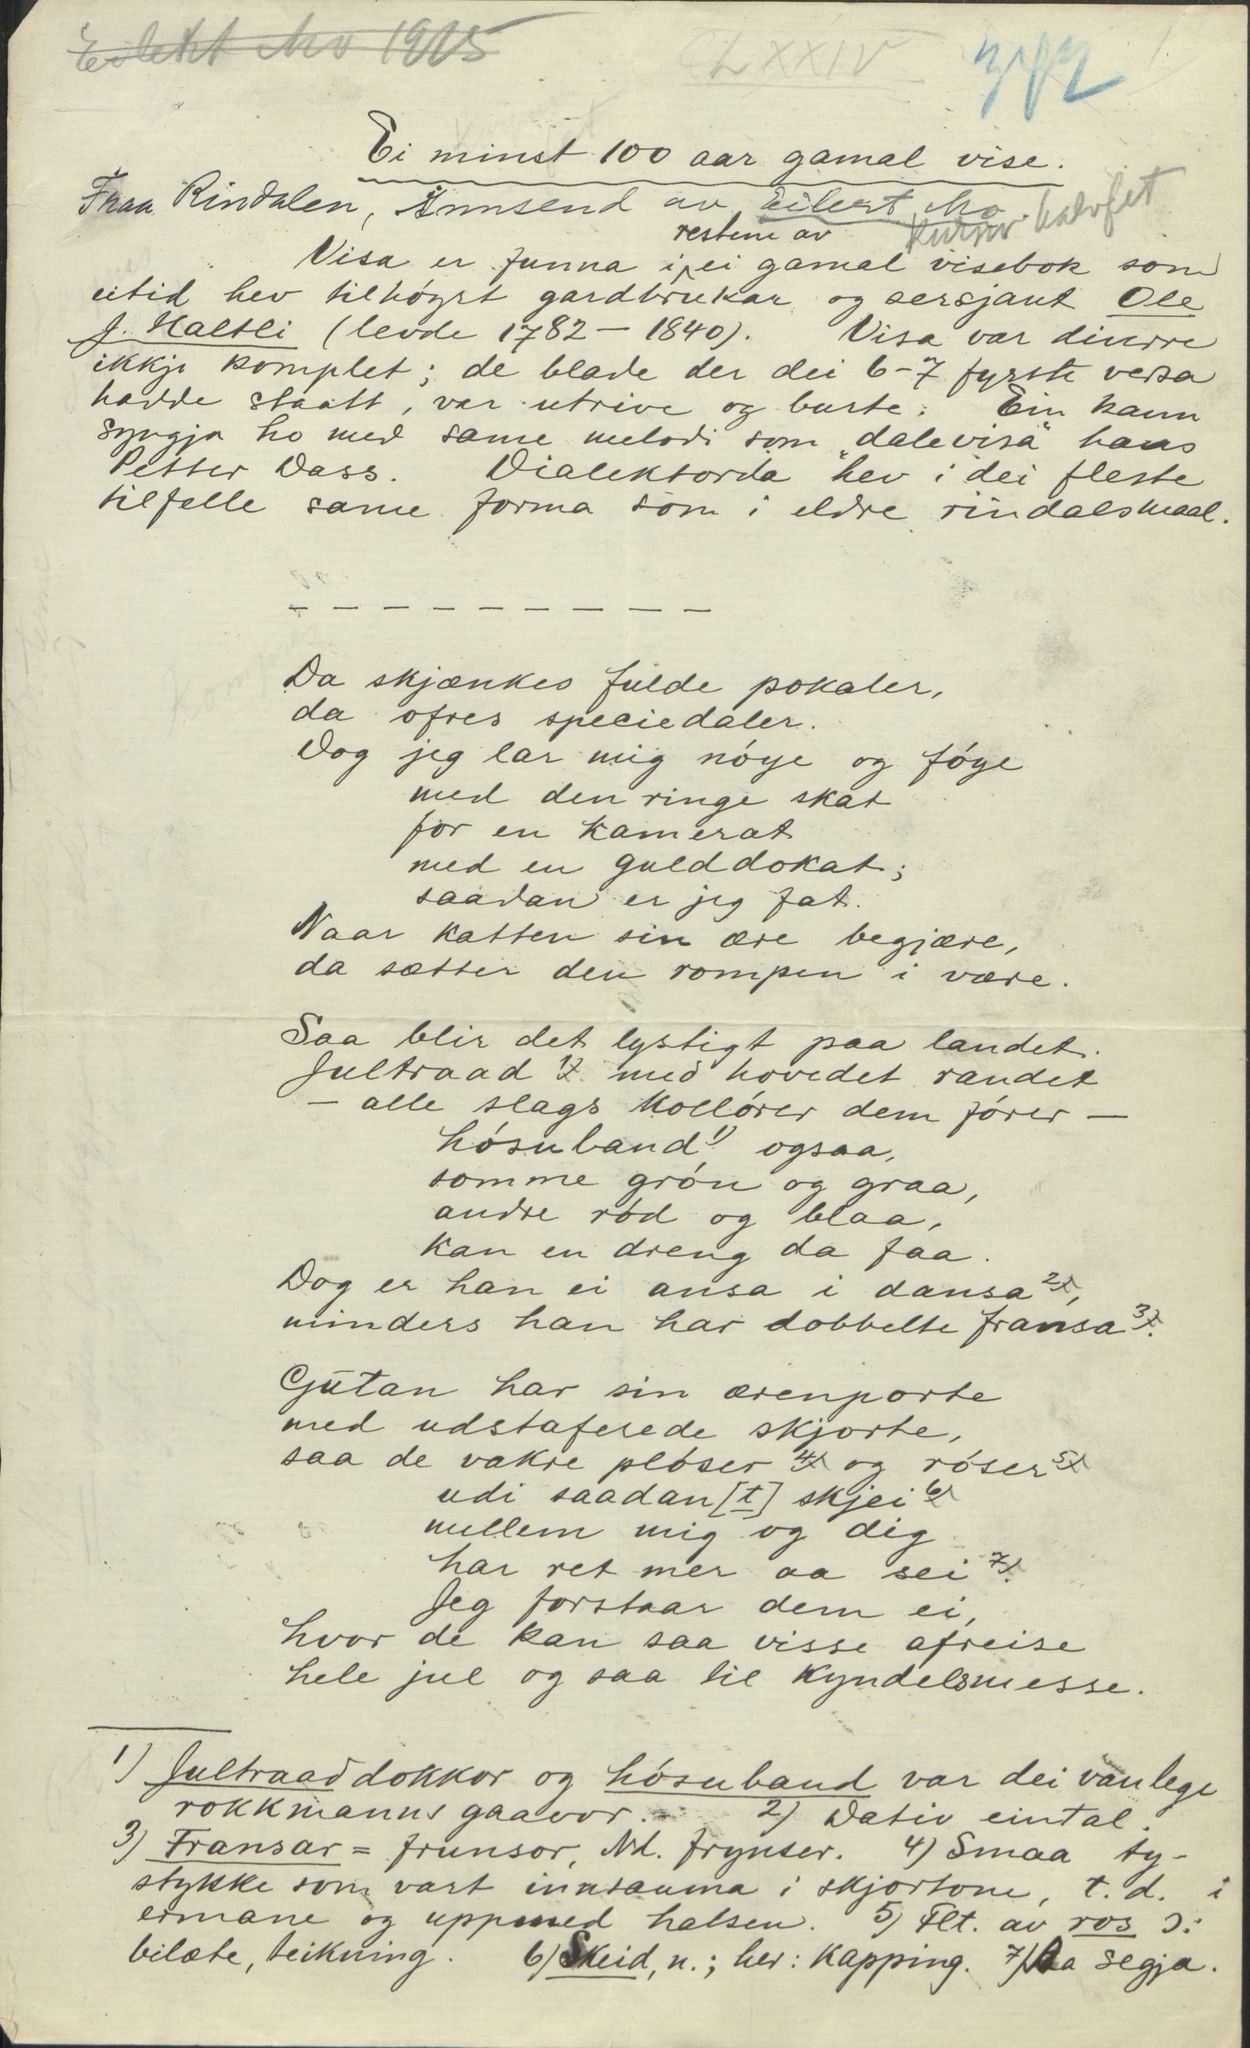 Eilert Mo 1915
CLXXIV
1
Ei minst 100 aar gamal vise.
Fraa Rindalen, Innsend av Eilert Mo.
kursiv halvfet
restene av
Visa er funna i ei gamal visebok som
eitid hev tilhøyrt gardbrukar og sersjant Ole
J. Haltli (levde 1782 – 1840). Visa var dimre
ikkje komplet; de blade der dei 6-7 fyrste versa
hadde staatt, var utrive og burte. Ein kann
syngja ho med same melodi som "dalevisa" hans
Petter Dass. Dialektorda hev i dei fleste
tilfelle same forma som i eldre rindalsmaal.
– – – – – – – – – –
Da skjænkes fulde pokaler,
da ofres speciedaler.
Dog jeg lar mig nöye og föye
med den ringe skat
for en kamerat
med en gulddokat;
saadan er jeg fat.
Naar katten sin ære begjære,
da sætter den rompen i være.
Saa blir det lystigt paa landet.
Jultraad 1) med hovedet randet
– alle slags kollörer dem förer –
hósuband 1) ogsaa,
somme grön og graa,
andre röd og blaa,
kan en dreng da faa.
Dog er han ei ansa i dansa 2),
minders han har dobbelte fransa 3).
Gutan har sin ærenporte
med udstaferede skjorte,
saa de vakre plöser 4) og röser 5)
udi saadan [t] skjei 6)
mellem mig og dig
har ret mer aa sei 7).
Jeg forstaar dem ei,
hvor de kan saa visse afreise
hele jul og saa til Kyndelsmesse.
1) Jultraaddokkor og hósuband var dei vanlege
rokkmanns gaavor. 2) Dativ eintal.
3) Fransar = frunsor, Nd. frynser. 4) Smaa ty-
stykke som vart innsauma i skjortone, t. d. i
ermane og uppmed halsen. 5) Flt. av ros ɔ:
bilæte, teikning. 6) Skeid, n.; her: kapping. 7) Aa segja.